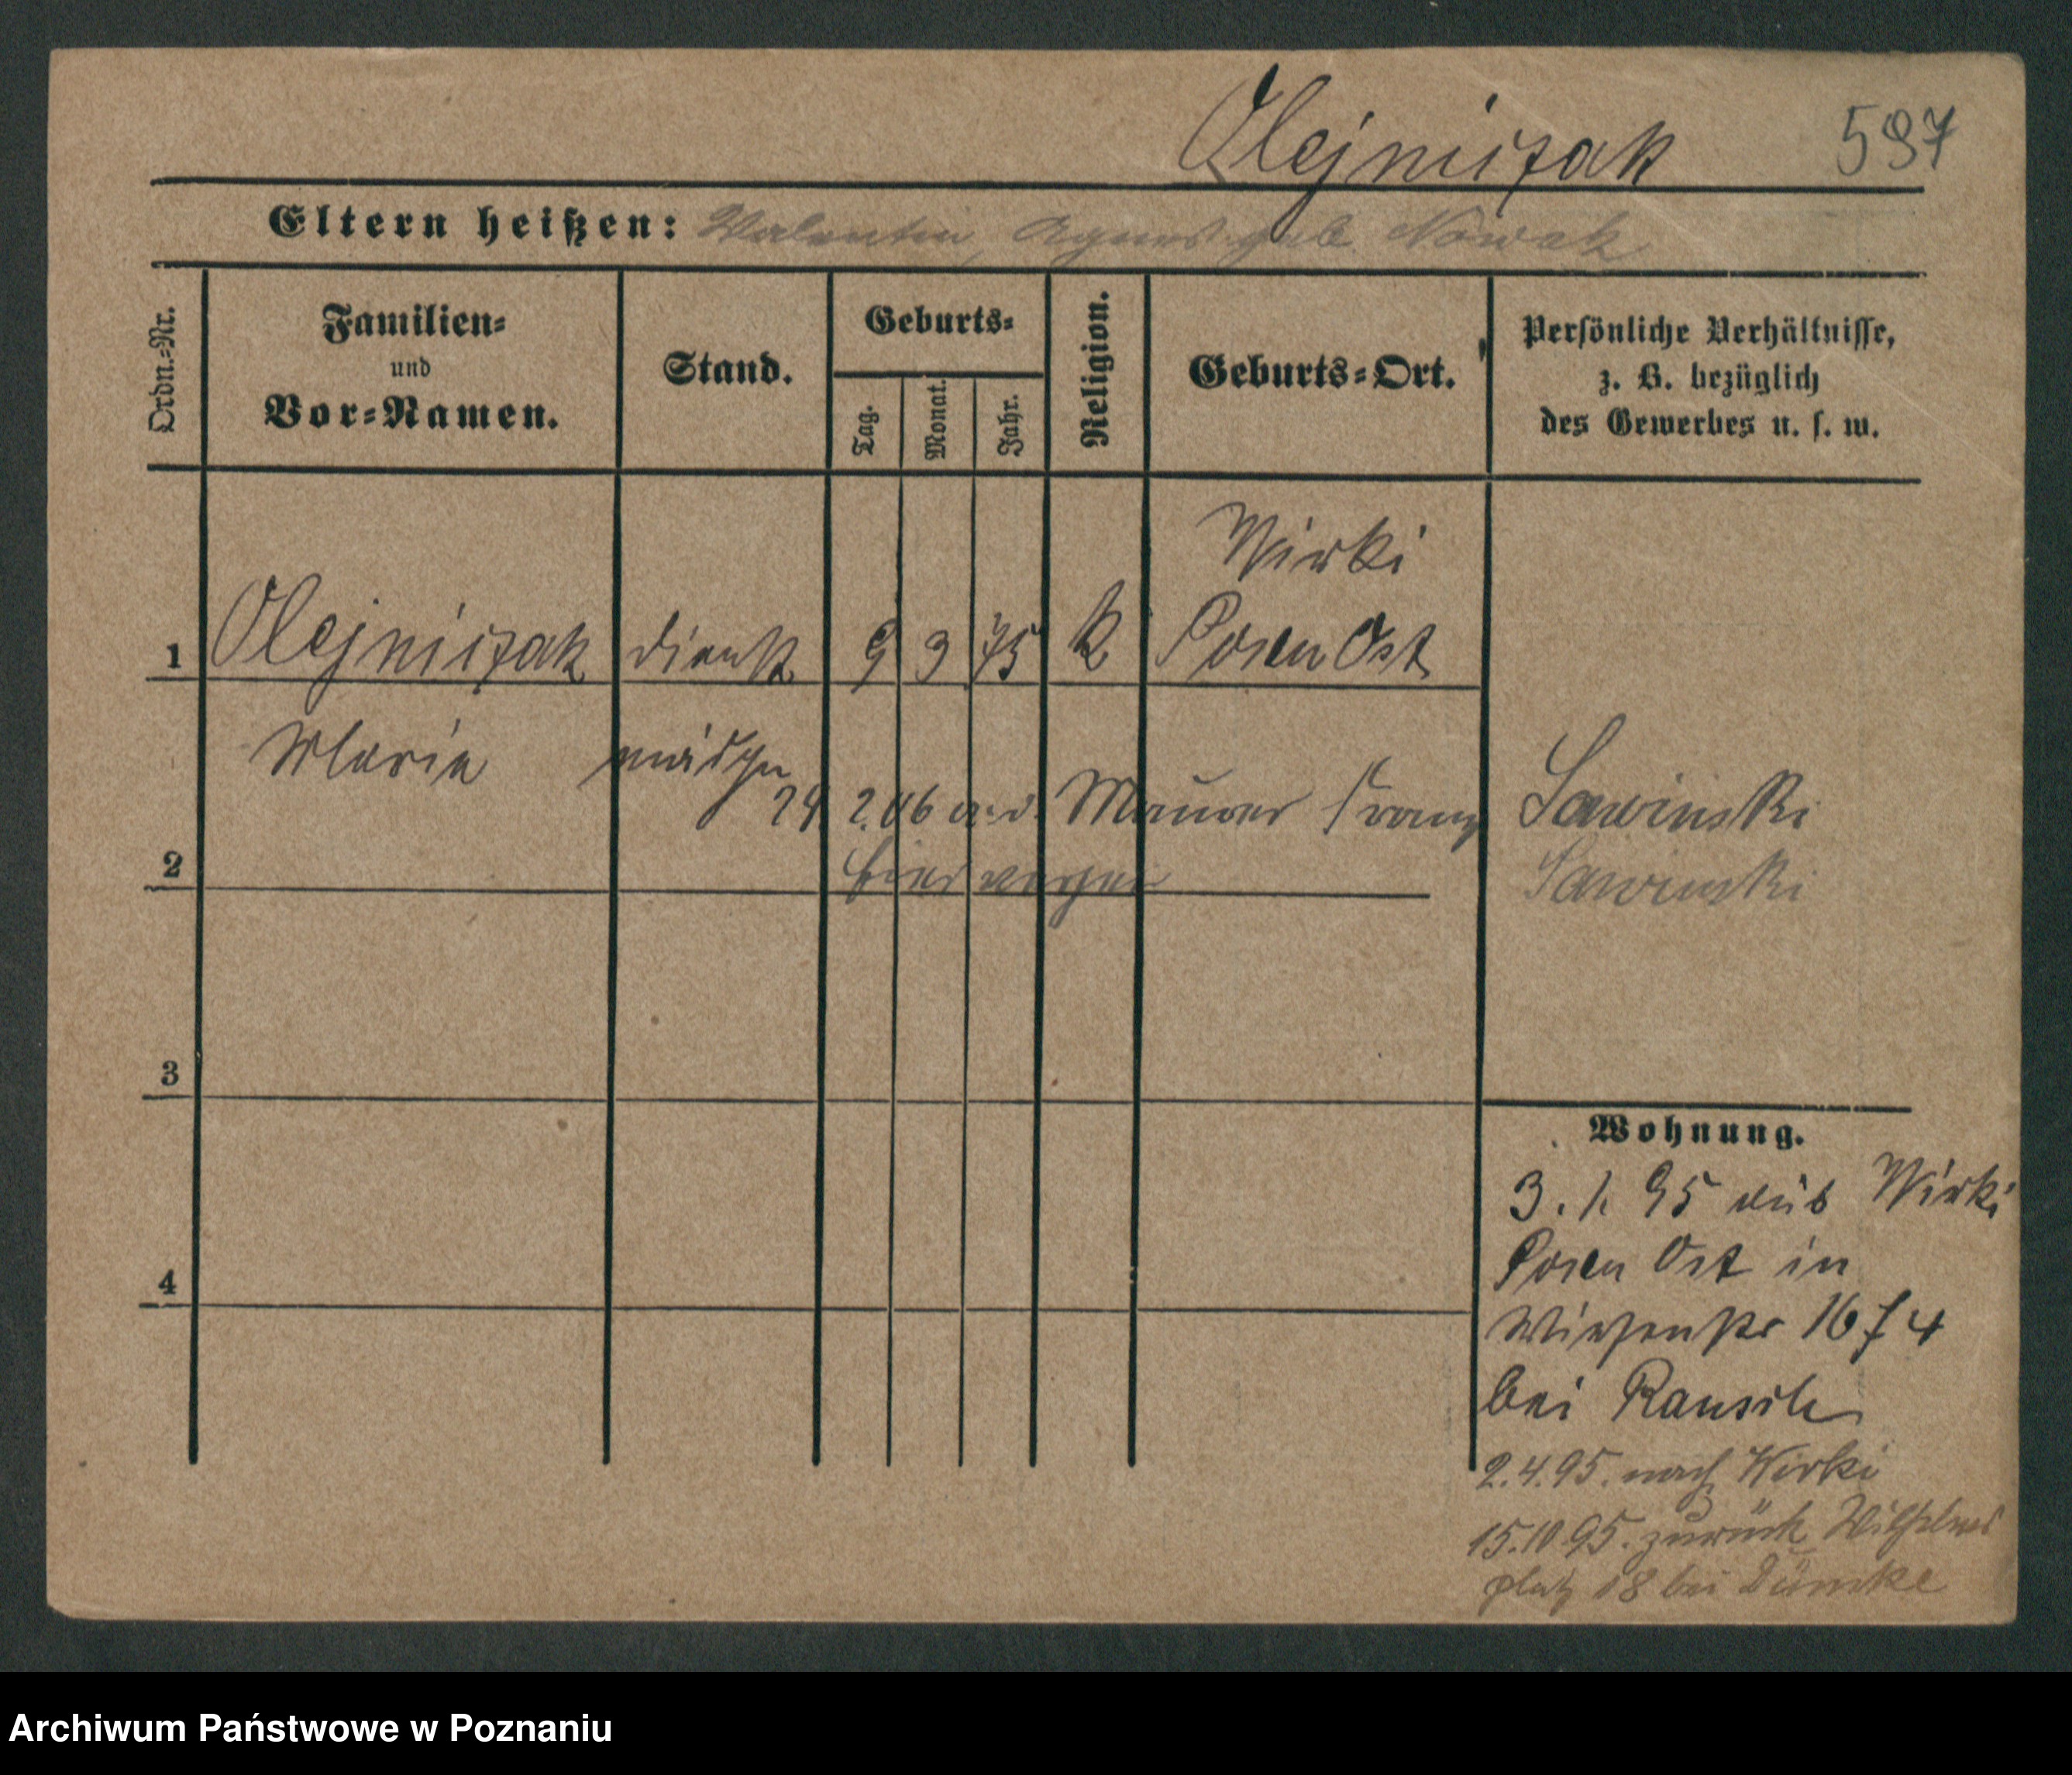 Olejniczak 597
Eltern heißen: Valentin, Agnes geb. Nowak
Ordn.=Nr.
Familien=
und
Vor=Namen.
Stand.
Geburts=
Tag.
Monat.
Jahr.
Religion.
Geburts=Ort.
Persönliche Verhältnisse,
z. B. bezüglich
des Gewerbes u. s. w.
Wirki
1 Olejniczak Dienst 9 3 75 k Posen Ost
Maria mädchen
24. 2.06 a. d. Maurer Franz Sawinski
2 Sawinski
3
4
Wohnung.
3. 1. 95 aus Wirki
Posen Ost in
Wiesenstr 16 f 4
bei Rausch
2.4.95. nach Wirki
15.10.95. zurück Wilhelms
platz 18 bei Dümke
Archiwum Państwowe w Poznaniu